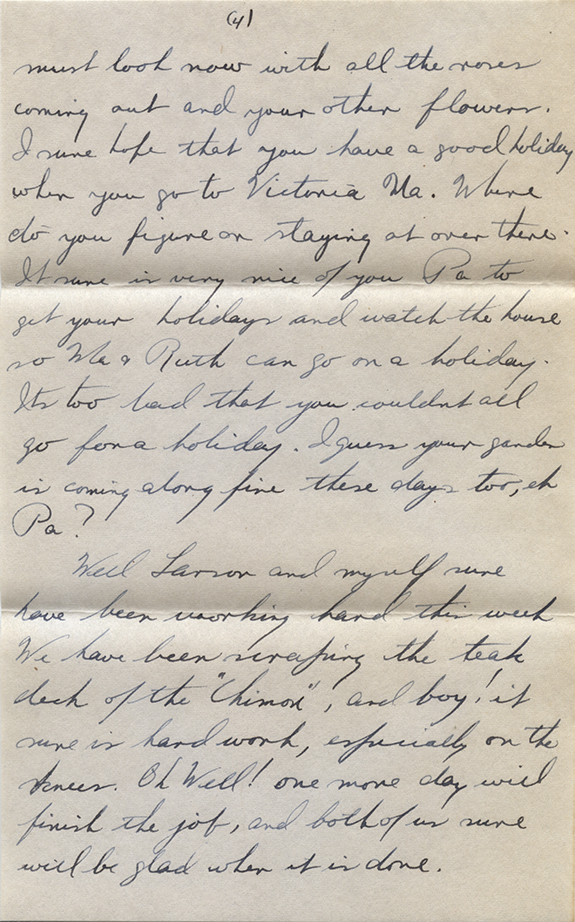 (4)
must look now with all the roses
coming out and your other flowers.
I sure hope that you have a good holiday
when you go to Victoria Ma. Where
do you figure on staying at over there.
It sure is very nice of you Pa to
get your holidays and watch the house
so Ma & Ruth can go on a holiday.
Its too bad that you couldnt all
go for a holiday. I guess your garden
is coming along fine these days too, eh
Pa?
Well Larson and myself sure
have been working hard this week
We have been scraping the teak
deck of the "Chimon", and boy! it
sure is hard work, especially on the
knees. Oh Well! one more day will
finish the job, and both of us sure
will be glad when it is done.